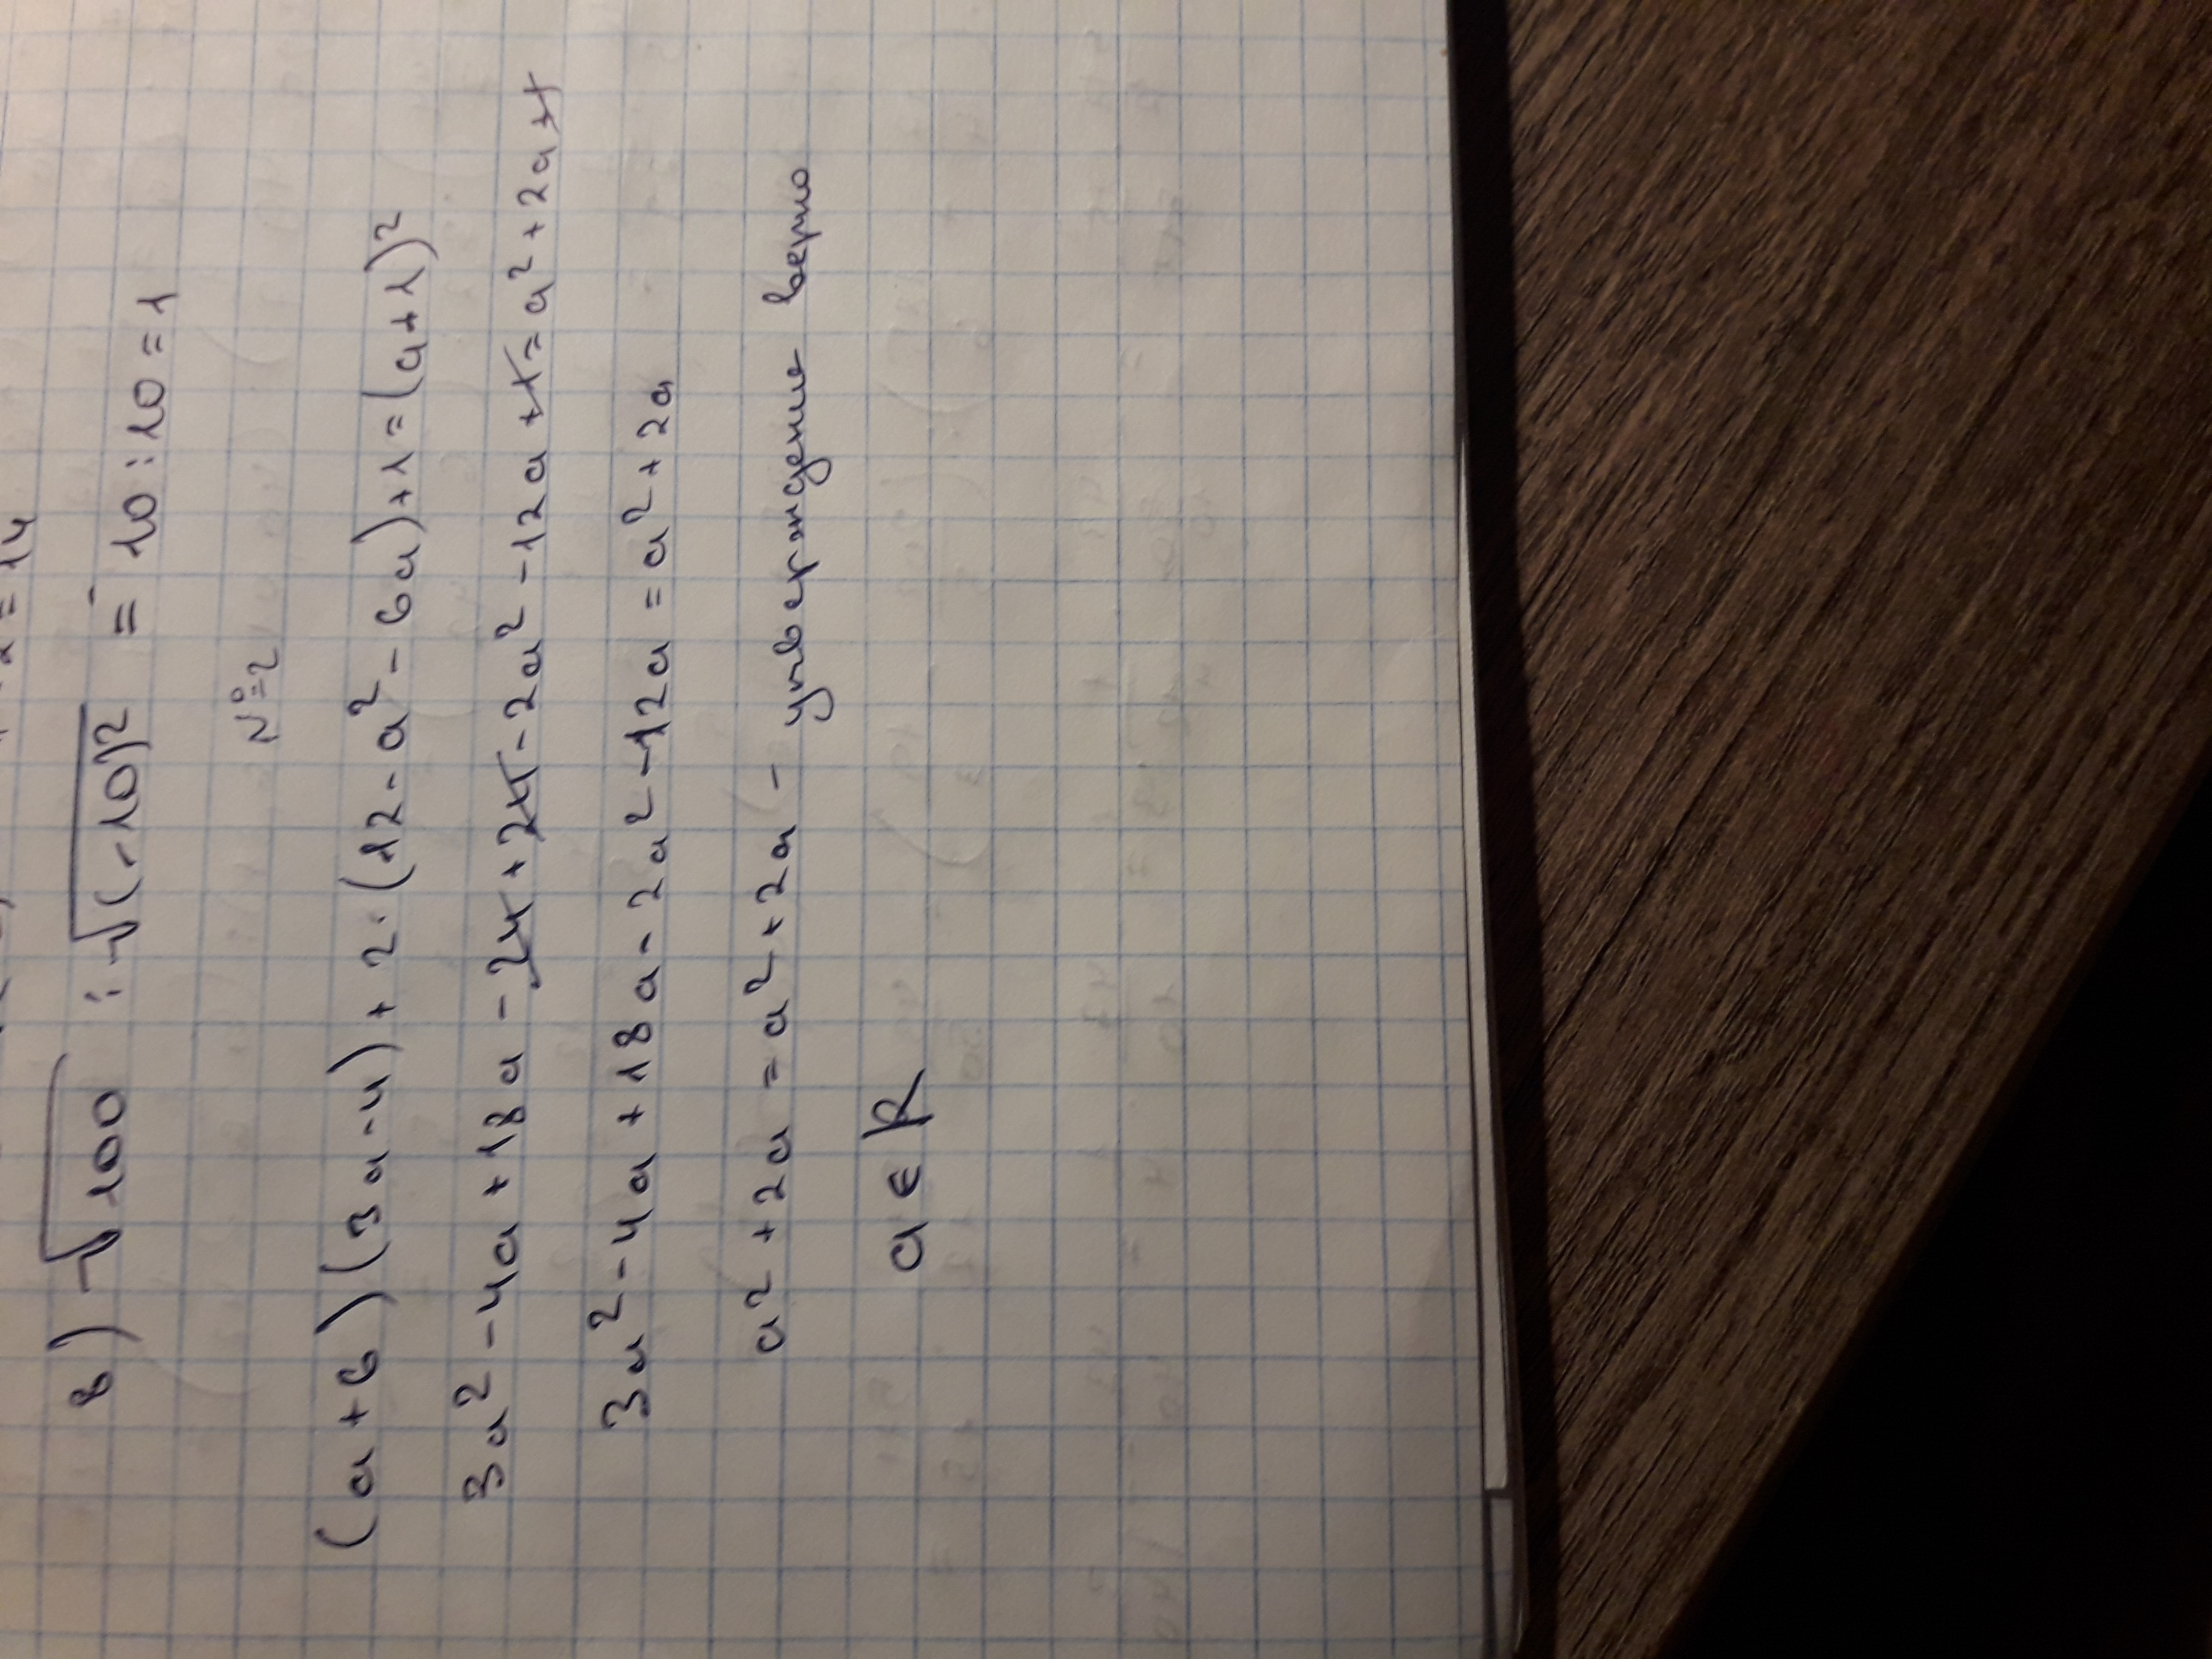 2 = 14
в) √100 : √(-10)² = 10 : 10 = 1
№2
(a + 6)(3a - 4) + 2 · (12 - a² - 6a) + 1 = (a + 1)²
3a² - 4a + 18a - 24 + 24 - 2a² - 12a + 1 = a² + 2a + 1
3a² - 4a + 18a - 2a² - 12a = a² + 2a
a² + 2a = a² + 2a - утверждение верно
a ∈ R